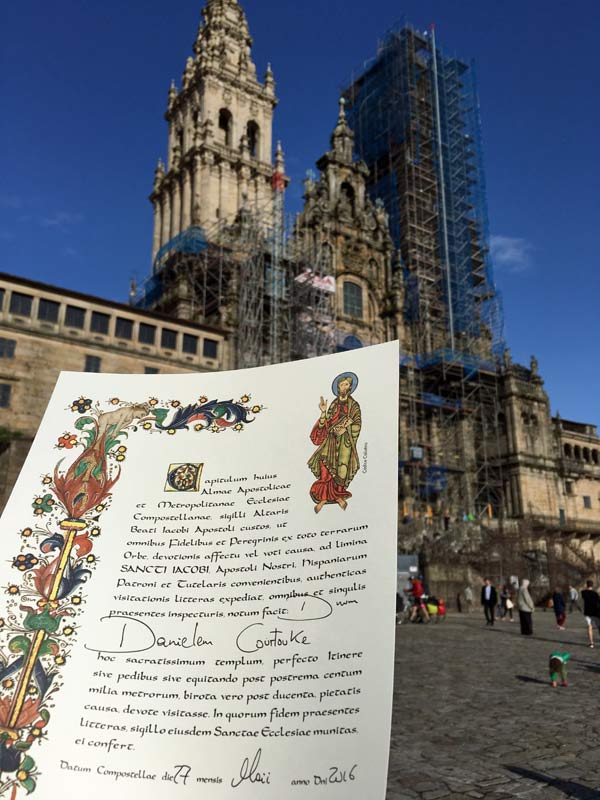 Capitulum huius
Almae Apostolicae
et Metropolitanae Ecclesiae
Compostellanae, sigilli Altaris
Beati Iacobi Apostoli custos, ut
omnibus Fidelibus et Peregrinis ex toto terrarum
Orbe, devotionis affectu vel voti causa, ad limina
SANCTI IACOBI, Apostoli Nostri, Hispaniarum
Patroni et Tutelaris convenientibus, authenticas
visitationis litteras expediat, omnibus et singulis
praesentes inspecturis, notum facit: Dnum
Danielem Courtouke
hoc sacratissimum templum, perfecto Itinere
sive pedibus sive equitando post postrema centum
milia metrorum, birota vero post ducenta, pietatis
causa, devote visitasse. In quorum fidem praesentes
litteras, sigillo eiusdem Sanctae Ecclesiae munitas,
ei confert.
Datum Compostellae die 17 mensis Maii anno Dni 2016
Codice Calixtino